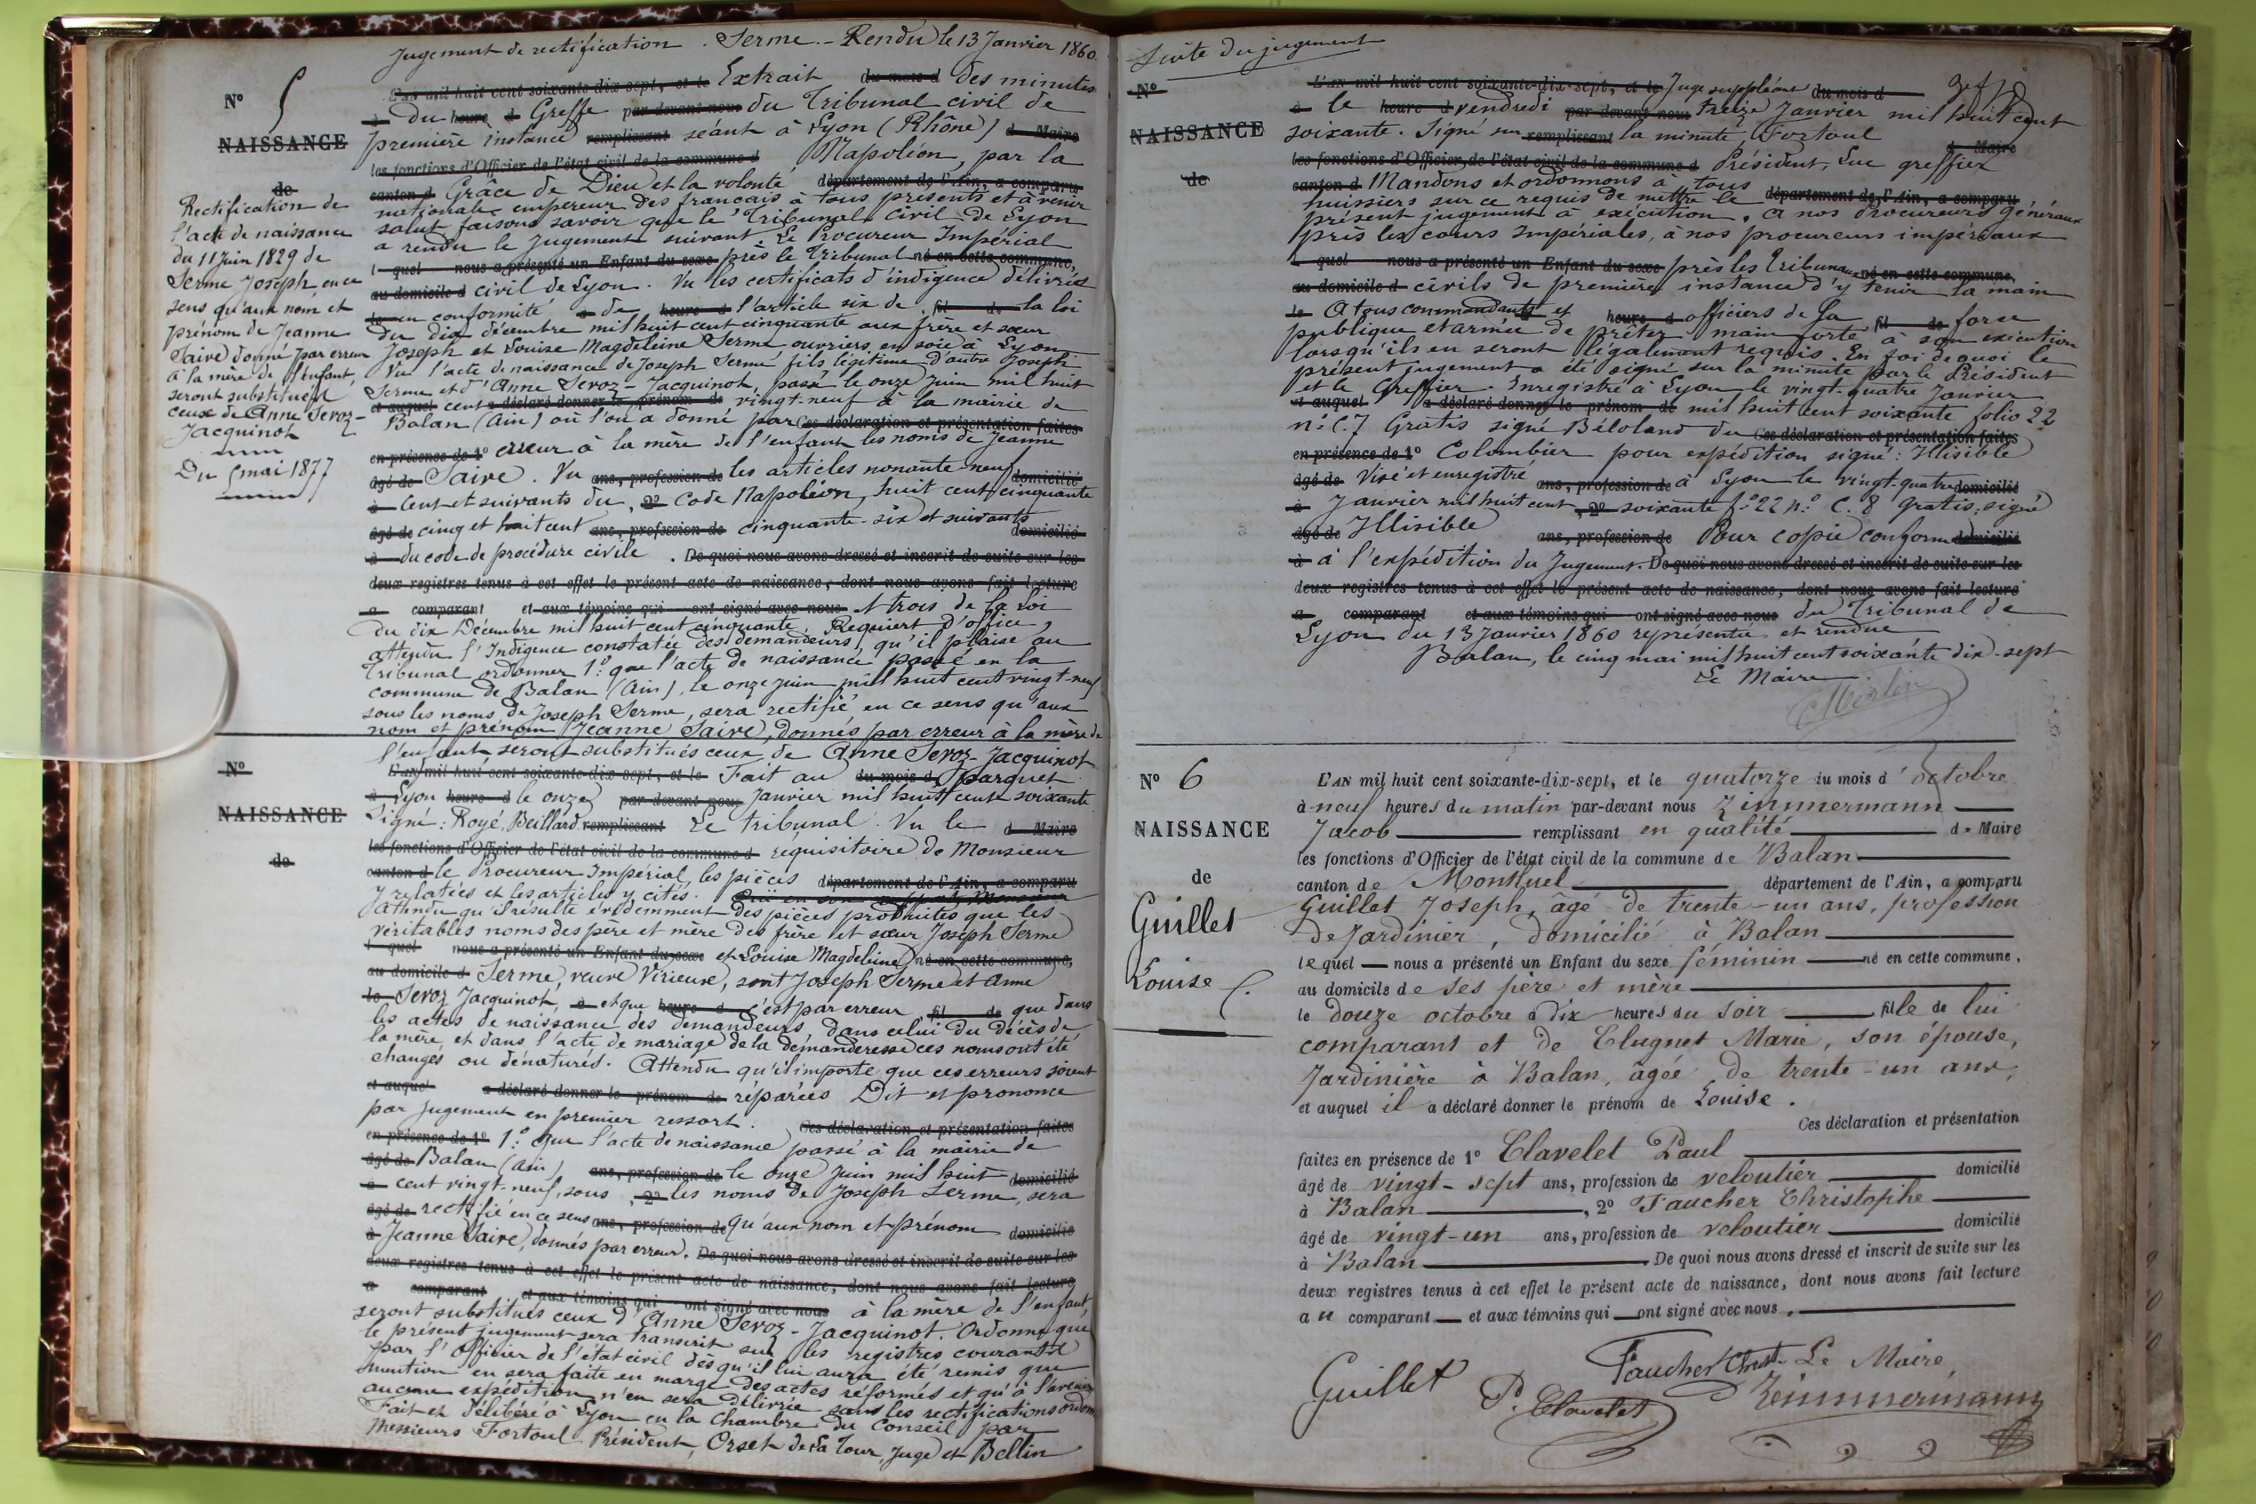 Jugement de rectification. Serme. - Rendu le 13 Janvier 1860.
N° 5
NAISSANCE
de
Rectification de
l'acte de naissance
du 11 Juin 1829 de
Serme Joseph en ce
sens qu'aux nom et
prénom de Jeanne
Saive donné par erreur
à la mère de l'enfant,
seront substitués
ceux de Anne Sevoz-
Jacquinot
Du 5 mai 1877
L'an mil huit cent soixante-dix-sept, et le Extrait du mois d des minutes
à du heure d Greffe par-devant nous du Tribunal civil de
première instance remplissant séant à Lyon (Rhône) d Maire
les fonctions d'Officier de l'état civil de la commune d Napoléon, par la
canton d Grâce de Dieu et la volonté département de l'Ain, a comparu
nationale, empereur des français à tous présents et à venir
salut faisons savoir que le Tribunal civil de Lyon
a rendu le jugement suivant Le Procureur Impérial
l quel nous a présenté un Enfant du sexe près le Tribunal né en cette commune,
au domicile d civil de Lyon. Vu les certificats d'indigence délivrés
le en conformité à de heure d l'article six de fil de la loi
du dix décembre mil huit cent cinquante aux frère et sœur
Joseph et Louise Magdeleine Serme ouvriers en soie à Lyon
Vu l'acte de naissance de Joseph Serme fils légitime d'autre Joseph
Serme et d'Anne Sevoz-Jacquinot, passé le onze juin mil huit
et auquel cent a déclaré donner le prénom de vingt-neuf à la mairie de
Balan (Ain) où l'on a donné par Ces déclaration et présentation faites
en présence de 1° erreur à la mère de l'enfant les noms de Jeanne
âgé de Saive. Vu ans, profession de les articles nonante-neuf domicilié
à Cent et suivants du, 2° Code Napoléon, huit cent cinquante
âgé de cinq et huit cent ans, profession de cinquante-six et suivants domicilié
à du code de procédure civile. De quoi nous avons dressé et inscrit de suite sur les
deux registres tenus à cet effet le présent acte de naissance, dont nous avons fait lecture
a comparant et aux témoins qui ont signé avec nous trois de la Loi
du dix Décembre mil huit cent cinquante Requiert d'office,
attendu l'Indigence constatée des demandeurs, qu'il plaise au
Tribunal ordonner 1° que l'acte de naissance passé en la
commune de Balan (Ain), le onze juin mil huit cent vingt-neuf
sous les noms de Joseph Serme, sera rectifié en ce sens qu'aux
nom et prénom (Jeanne Saive) donnés par erreur à la mère de
l'enfant seront substitués ceux de Anne Sevoz-Jacquinot
N°
NAISSANCE
de
L'an mil huit cent soixante-dix-sept, et le Fait au du mois d parquet
à Lyon heure d le onze par-devant nous Janvier mil huit cent soixante
Signé: Royé, Beillard remplissant Le tribunal. Vu le d Maire
les fonctions d'Officier de l'état civil de la commune d requisitoire de Monsieur
canton d le Procureur Impérial, les pièces département de l'Ain, a comparu
y relatées et les articles y cités.
Attendu qu'il résulte évidemment des pièces produites que les
véritables noms des père et mère des frère et sœur Joseph Serme
l quel nous a présenté un Enfant du sexe et Louise Magdeleine né en cette commune,
au domicile d Serme, veuve Virieux, sont Joseph Serme et Anne
le Sevoz Jacquinot, à et que heure d c'est par erreur fil de que dans
les actes de naissance des demandeurs, dans celui du décès de
la mère, et dans l'acte de mariage de la demanderesse ces noms ont été
changés ou dénaturés. Attendu qu'il importe que ces erreurs soient
et auquel a déclaré donner le prénom de réparées Dit et prononce
par jugement en premier ressort. Ces déclaration et présentation faites
en présence de 1° 1° que l'acte de naissance passé à la mairie de
âgé de Balan (Ain) ans, profession de le onze juin mil huit domicilié
à cent vingt-neuf, sous, 2° les noms de Joseph Serme, sera
âgé de rectifié en ce sens ans, profession de qu'aux nom et prénom domicilié
à Jeanne Saive, donnés par erreur. De quoi nous avons dressé et inscrit de suite sur les
deux registres tenus à cet effet le présent acte de naissance, dont nous avons fait lecture
a comparant et aux témoins qui ont signé avec nous à la mère de l'enfant
seront substitués ceux d'Anne Sevoz-Jacquinot. Ordonne que
le présent jugement sera transcrit sur les registres courants
par l'Officier de l'état civil dès qu'il lui aura été remis que
mention en sera faite en marge des actes réformés et qu'à l'avenir
aucune expédition n'en sera délivrée sans les rectifications ordon
Fait et délibéré à Lyon en la Chambre du Conseil par
Messieurs Fortoul Président, Orset de la Tour, Juge et Bellin
Suite du jugement
N°
NAISSANCE
de
L'an mil huit cent soixante-dix-sept, et le Juge suppléant du mois d
à le heure d vendredi par-devant nous treize Janvier mil huit cent
soixante. Signé sur remplissant la minute Fortoul d Maire
les fonctions d'Officier de l'état civil de la commune d Président, Luc greffier
canton d Mandons et ordonnons à tous département de l'Ain, a comparu
huissiers sur ce requis de mettre le
présent jugement à exécution, a nos Procureurs généraux
près les cours Impériales, à nos procureurs impériaux
l quel nous a présenté un Enfant du sexe près les Tribunaux né en cette commune,
au domicile d civils de première instance d'y tenir la main
le A tous commandants et heure d officiers de la fil de force
publique et armée de prêter main forte à son exécution
lorsqu'ils en seront légalement requis. En foi de quoi le
présent jugement a été signé sur la minute par le Président
et le Greffier. Enregistré à Lyon le vingt-quatre Janvier
et auquel a déclaré donner le prénom de mil huit cent soixante folio 22
n° C. 7 Gratis signé Béloland du Ces déclaration et présentation faites
en présence de 1° Colombier pour expédition signé: Illisible
âgé de Visé et enregistré ans, profession de à Lyon le vingt-quatre domicilié
à Janvier mil huit cent, 2° soixante f° 22 n° C. 8 gratis, signé
âgé de Illisible ans, profession de Pour copie conforme domicilié
à à l'expédition du Jugement. De quoi nous avons dressé et inscrit de suite sur les
deux registres tenus à cet effet le présent acte de naissance, dont nous avons fait lecture
a comparant et aux témoins qui ont signé avec nous du Tribunal de
Lyon du 13 Janvier 1860 représentée et rendue
Balan, le cinq mai mil huit cent soixante dix-sept
Le Maire
N° 6
NAISSANCE
de
Guillet
Louise
L'AN mil huit cent soixante-dix-sept, et le quatorze du mois d'octobre
à neuf heures du matin par-devant nous Zimmermann
Jacob remplissant en qualité de Maire
les fonctions d'Officier de l'état civil de la commune de Balan
canton de Montluel département de l'Ain, a comparu
Guillet Joseph, âgé de trente-un ans, profession
de Jardinier, domicilié à Balan
lequel nous a présenté un Enfant du sexe féminin né en cette commune,
au domicile de ses père et mère
le douze octobre à dix heures du soir fille de lui
comparant et de Clugnet Marie, son épouse,
Jardinière à Balan, âgée de trente-un ans,
et auquel il a déclaré donner le prénom de Louise.
Ces déclaration et présentation
faites en présence de 1° Clavelet Paul
âgé de vingt-sept ans, profession de veloutier domicilié
à Balan, 2° Faucher Christophe
âgé de vingt-un ans, profession de veloutier domicilié
à Balan. De quoi nous avons dressé et inscrit de suite sur les
deux registres tenus à cet effet le présent acte de naissance, dont nous avons fait lecture
au comparant et aux témoins qui ont signé avec nous.
Guillet P. Clavelet Faucher Christ. Le Maire,
Zimmermann